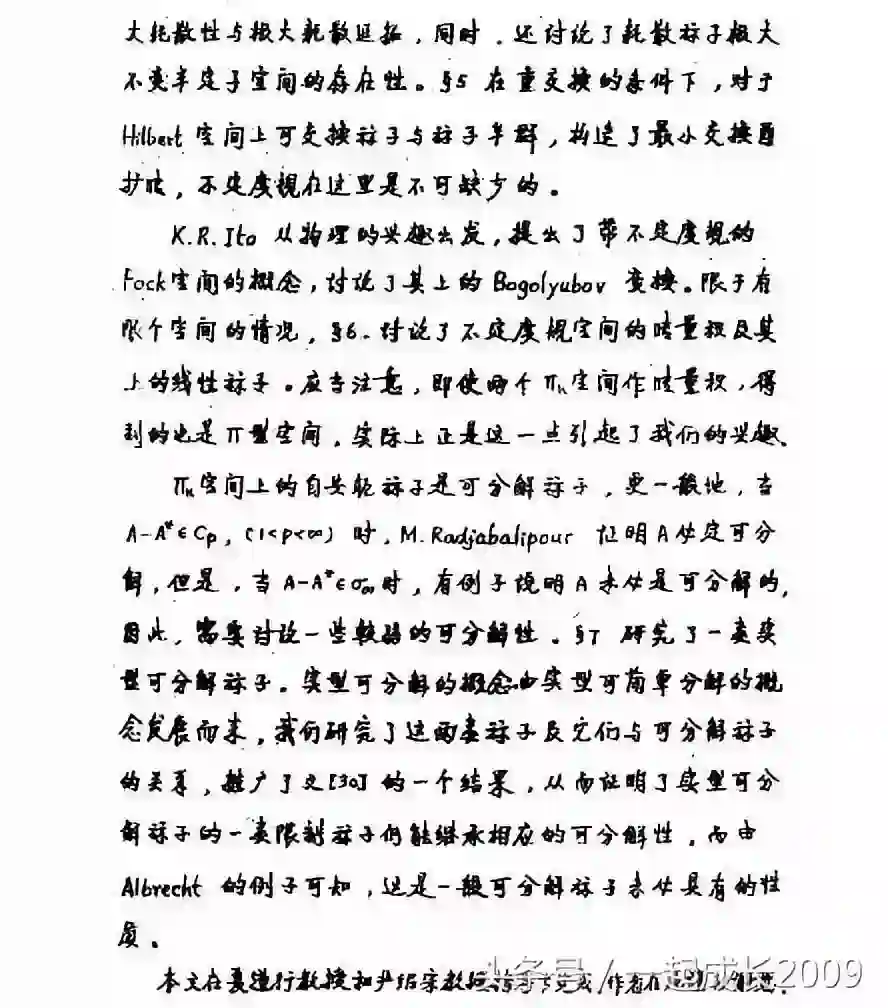 大耗散性与极大耗散延拓，同时，还讨论了耗散算子极大
不变半定子空间的存在性。§5 在重交换的条件下，对于
Hilbert 空间上可交换算子与算子半群，构造了最小交换酉
扩张，不定度规在这里是不可缺少的。
K.R.Ito 从物理的兴趣出发，提出了带不定度规的
Fock空间的概念，讨论了其上的 Bogolyubov 变换。限于有
限个空间的情况，§6. 讨论了不定度规空间的张量积及其
上的线性算子。应当注意，即使两个 Πκ空间作张量积，得
到的也是Π型空间，实际上正是这一点引起了我们的兴趣。
Πκ空间上的自共轭算子是可分解算子，更一般地，当
A-A*∈Cp，(1<p<∞) 时，M.Radjabalipour 证明A必定可分
解，但是，当A-A*∈σ∞时，有例子说明A未必是可分解的，
因此，需要讨论一些较弱的可分解性。§7 研究了一类实
型可分解算子。实型可分解的概念由实型可简单分解的概
念发展而来，我们研究了这两类算子及它们与可分解算子
的关系，推广了文[30]的一个结果，从而证明了实型可分
解算子的一类限制算子仍能继承相应的可分解性，而由
Albrecht 的例子可知，这是一般可分解算子未必具有的性
质。
本文在夏道行教授和严绍宗教授指导下完成，作者在
头条号 / 一起成长2009